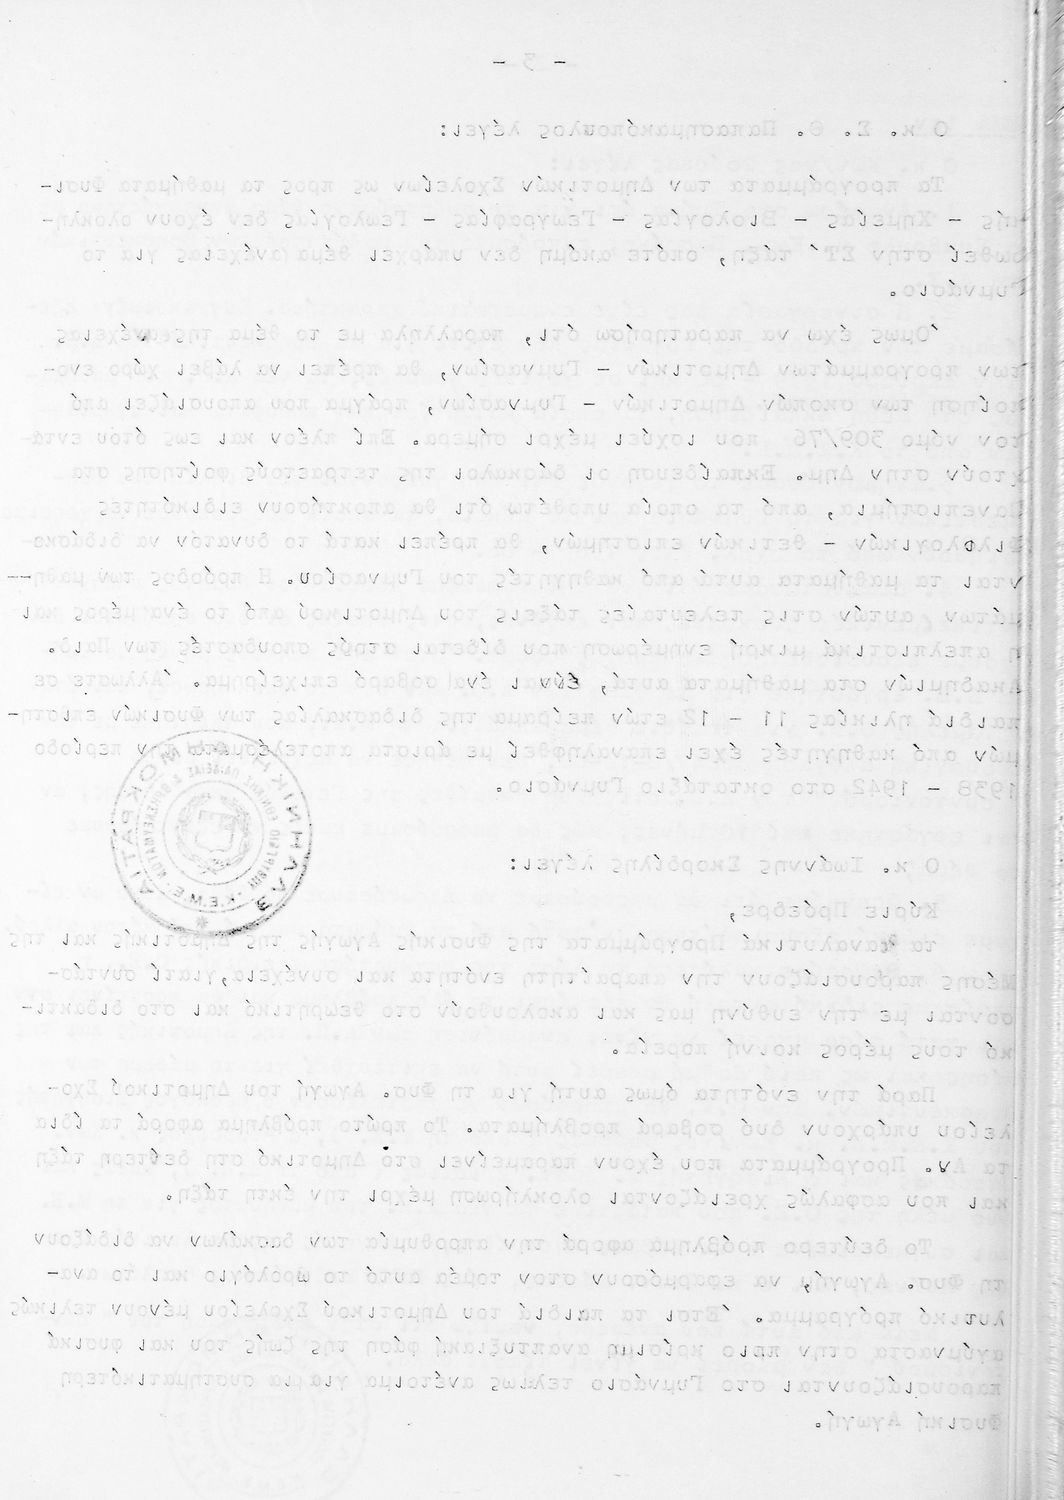 - 3 -
Ο κ. Σ. Θ. Παπασημακόπουλος λέγει:
Τα προγράμματα των Δημοτικών Σχολείων ως προς τα μαθήματα Φυσι-
κής - Χημείας - Βιολογίας - Γεωγραφίας - Γεωλογίας δεν έχουν ολοκλη-
ρωθεί στην ΣΤ΄ τάξη, οπότε ακόμη δεν υπάρχει θέμα συνέχειας για το
Γυμνάσιο.
Όμως έχω να παρατηρήσω ότι, παράλληλα με το θέμα της συνέχειας
των προγραμμάτων Δημοτικών - Γυμνασίων, θα πρέπει να λάβει χώρο ενο-
ποίηση των σκοπών Δημοτικών - Γυμνασίων, πράγμα που απουσιάζει από
τον νόμο 309/76 που ισχύει μέχρι σήμερα. Επί πλέον και εως ότου εντα-
χτούν στην Δημ. Εκπαίδευση οι δάσκαλοι της τετραετούς φοίτησης στα
Πανεπιστήμια, από τα οποία υποθέτω ότι θα αποκτήσουν ειδικότητες
Φιλολογικών - θετικών επιστημών, θα πρέπει κατά το δυνατόν να διδάσκο-
νται τα μαθήματα αυτά από καθηγητές του Γυμνασίου. Η πρόοδος των μαθη--
μάτων αυτών στις τελευταίες τάξεις του Δημοτικού από το ένα μέρος και
η απελπιστικά μικρή ενημέρωση που δίδεται στούς σπουδαστές των Παιδ.
Ακαδημιών στα μαθήματα αυτά, είναι ένα σοβαρό επιχείρημα. Άλλωστε σε
παιδιά ηλικίας 11 - 12 ετών πείραμα της διδασκαλίας των Φυσικών επιστη-
μών από καθηγητές έχει επαναληφθεί με άριστα αποτελέσματα την περίοδο
1938 - 1942 στο οκτατάξιο Γυμνάσιο.
Ο κ. Ιωάννης Σκορδίλης λέγει:
Κύριε Πρόεδρε,
τα αναλυτικά Προγράμματα της Φυσικής Αγωγής της Δημοτικής και της
Μέσης παρουσιάζουν την απαραίτητη ενότητα και συνέχεια, γιατί συντάσ-
σονται με την ευθύνη μας και ακολουθούν στο θεωρητικό και στο διδακτι-
κό τους μέρος κοινή πορεία.
Παρά την ενότητα όμως αυτή για τη Φυσ. Αγωγή του Δημοτικού Σχο-
λείου υπάρχουν δυό σοβαρά προβλήματα. Το πρώτο πρόβλημα αφορά τα ίδια
τα Αν. Προγράμματα που έχουν παραμείνει στο Δημοτικό στη δεύτερη τάξη
και που ασφαλώς χρειάζονται ολοκλήρωση μέχρι την έκτη τάξη.
Το δεύτερο πρόβλημα αφορά την απροθυμία των δασκάλων να διδάξουν
τη Φυσ. Αγωγή, να εφαρμόσουν στον τομέα αυτό το ωρολόγιο και το ανα-
λυτικό πρόγραμμα. Έτσι τα παιδιά του Δημοτικού Σχολείου μένουν τελικώς
αγύμναστα στην πιο κρίσιμη αναπτυξιακή φάση της ζωής του και φυσικά
παρουσιάζονται στο Γυμνάσιο τελίως ανέτοιμα για μια συστηματικότερη
Φυσική Αγωγή.
ΕΛΛΗΝΙΚΗ ΔΗΜΟΚΡΑΤΙΑ
Κ.Ε.Μ.Ε.